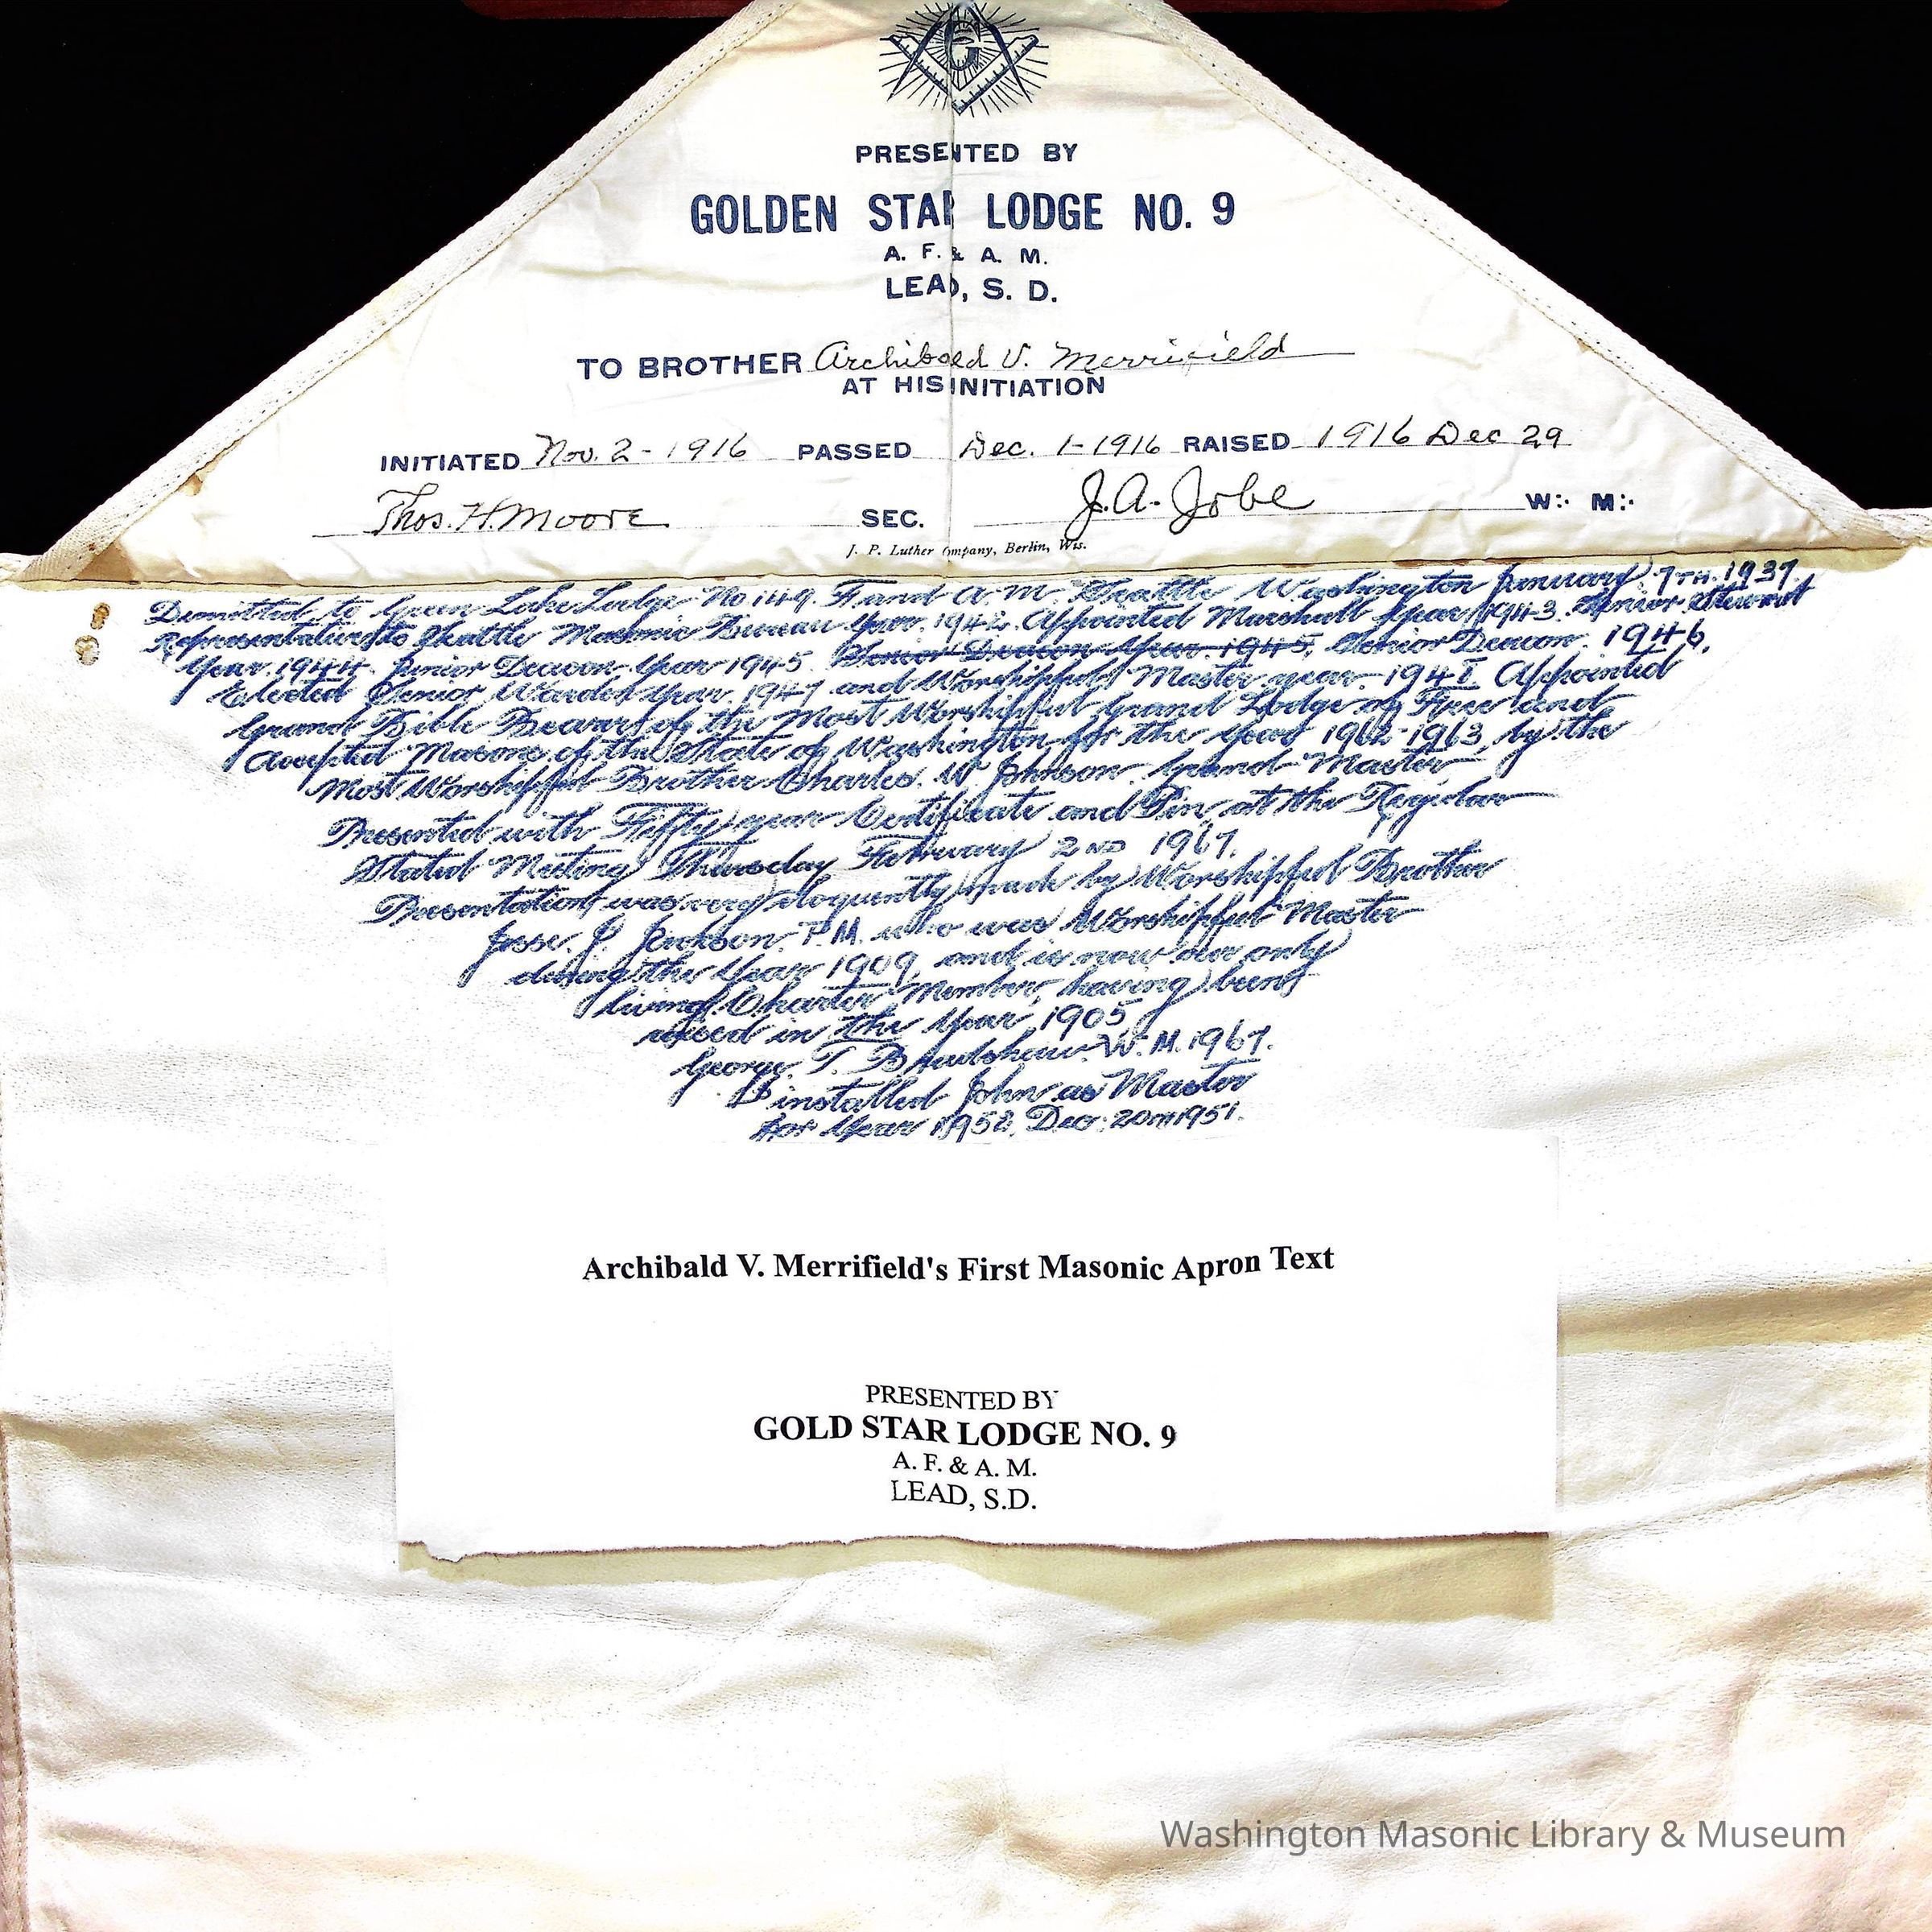 G
PRESENTED BY
GOLDEN STAR LODGE NO. 9
A. F. & A. M.
LEAD, S. D.
TO BROTHER Archibald V. Merrifield
AT HIS INITIATION
INITIATED Nov. 2 - 1916 PASSED Dec. 1-1916 RAISED 1916 Dec 29
Thos. H. Moore SEC. J. A. Jobe W∴ M∴
J. P. Luther Company, Berlin, Wis.
Demitted to Green Lake Lodge No 149. F. and A. M. Seattle Washington January 7TH. 1937.
Representative to Seattle Masonic Bureau Year. 1942. Appointed Marshall Year 1943. Senior Steward
Year. 1944. Junior Deacon Year 1945. Senior Deacon Year. 1945, Senior Deacon. 1946,
Elected Senior Warden Year. 1947 and Worshipful Master year Appointed
Grand Bible Bearer of the Most Worshipful Grand Lodge of Free and
Accepted Masons of the State of Washington for the Year 1962-1963, by the
Most Worshipful Brother Charles. W. Johnson Grand Master
Presented with Fifty year Certificate and Pin, at the Regular
Stated Meeting Thursday February 2ND 1967.
Presentation was very eloquently made by Worshipful Brother
Jesse. P. P.M. who was Worshipful Master
during the Year 1909, and is now our only
living Charter Member, having been
raised in the Year 1905
George. T. Bradshaw. W. M. 1967.
I installed John as Master
for Year 1952, Dec: 20TH 1951.
Archibald V. Merrifield's First Masonic Apron Text
PRESENTED BY
GOLD STAR LODGE NO. 9
A. F. & A. M.
LEAD, S.D.
Washington Masonic Library & Museum